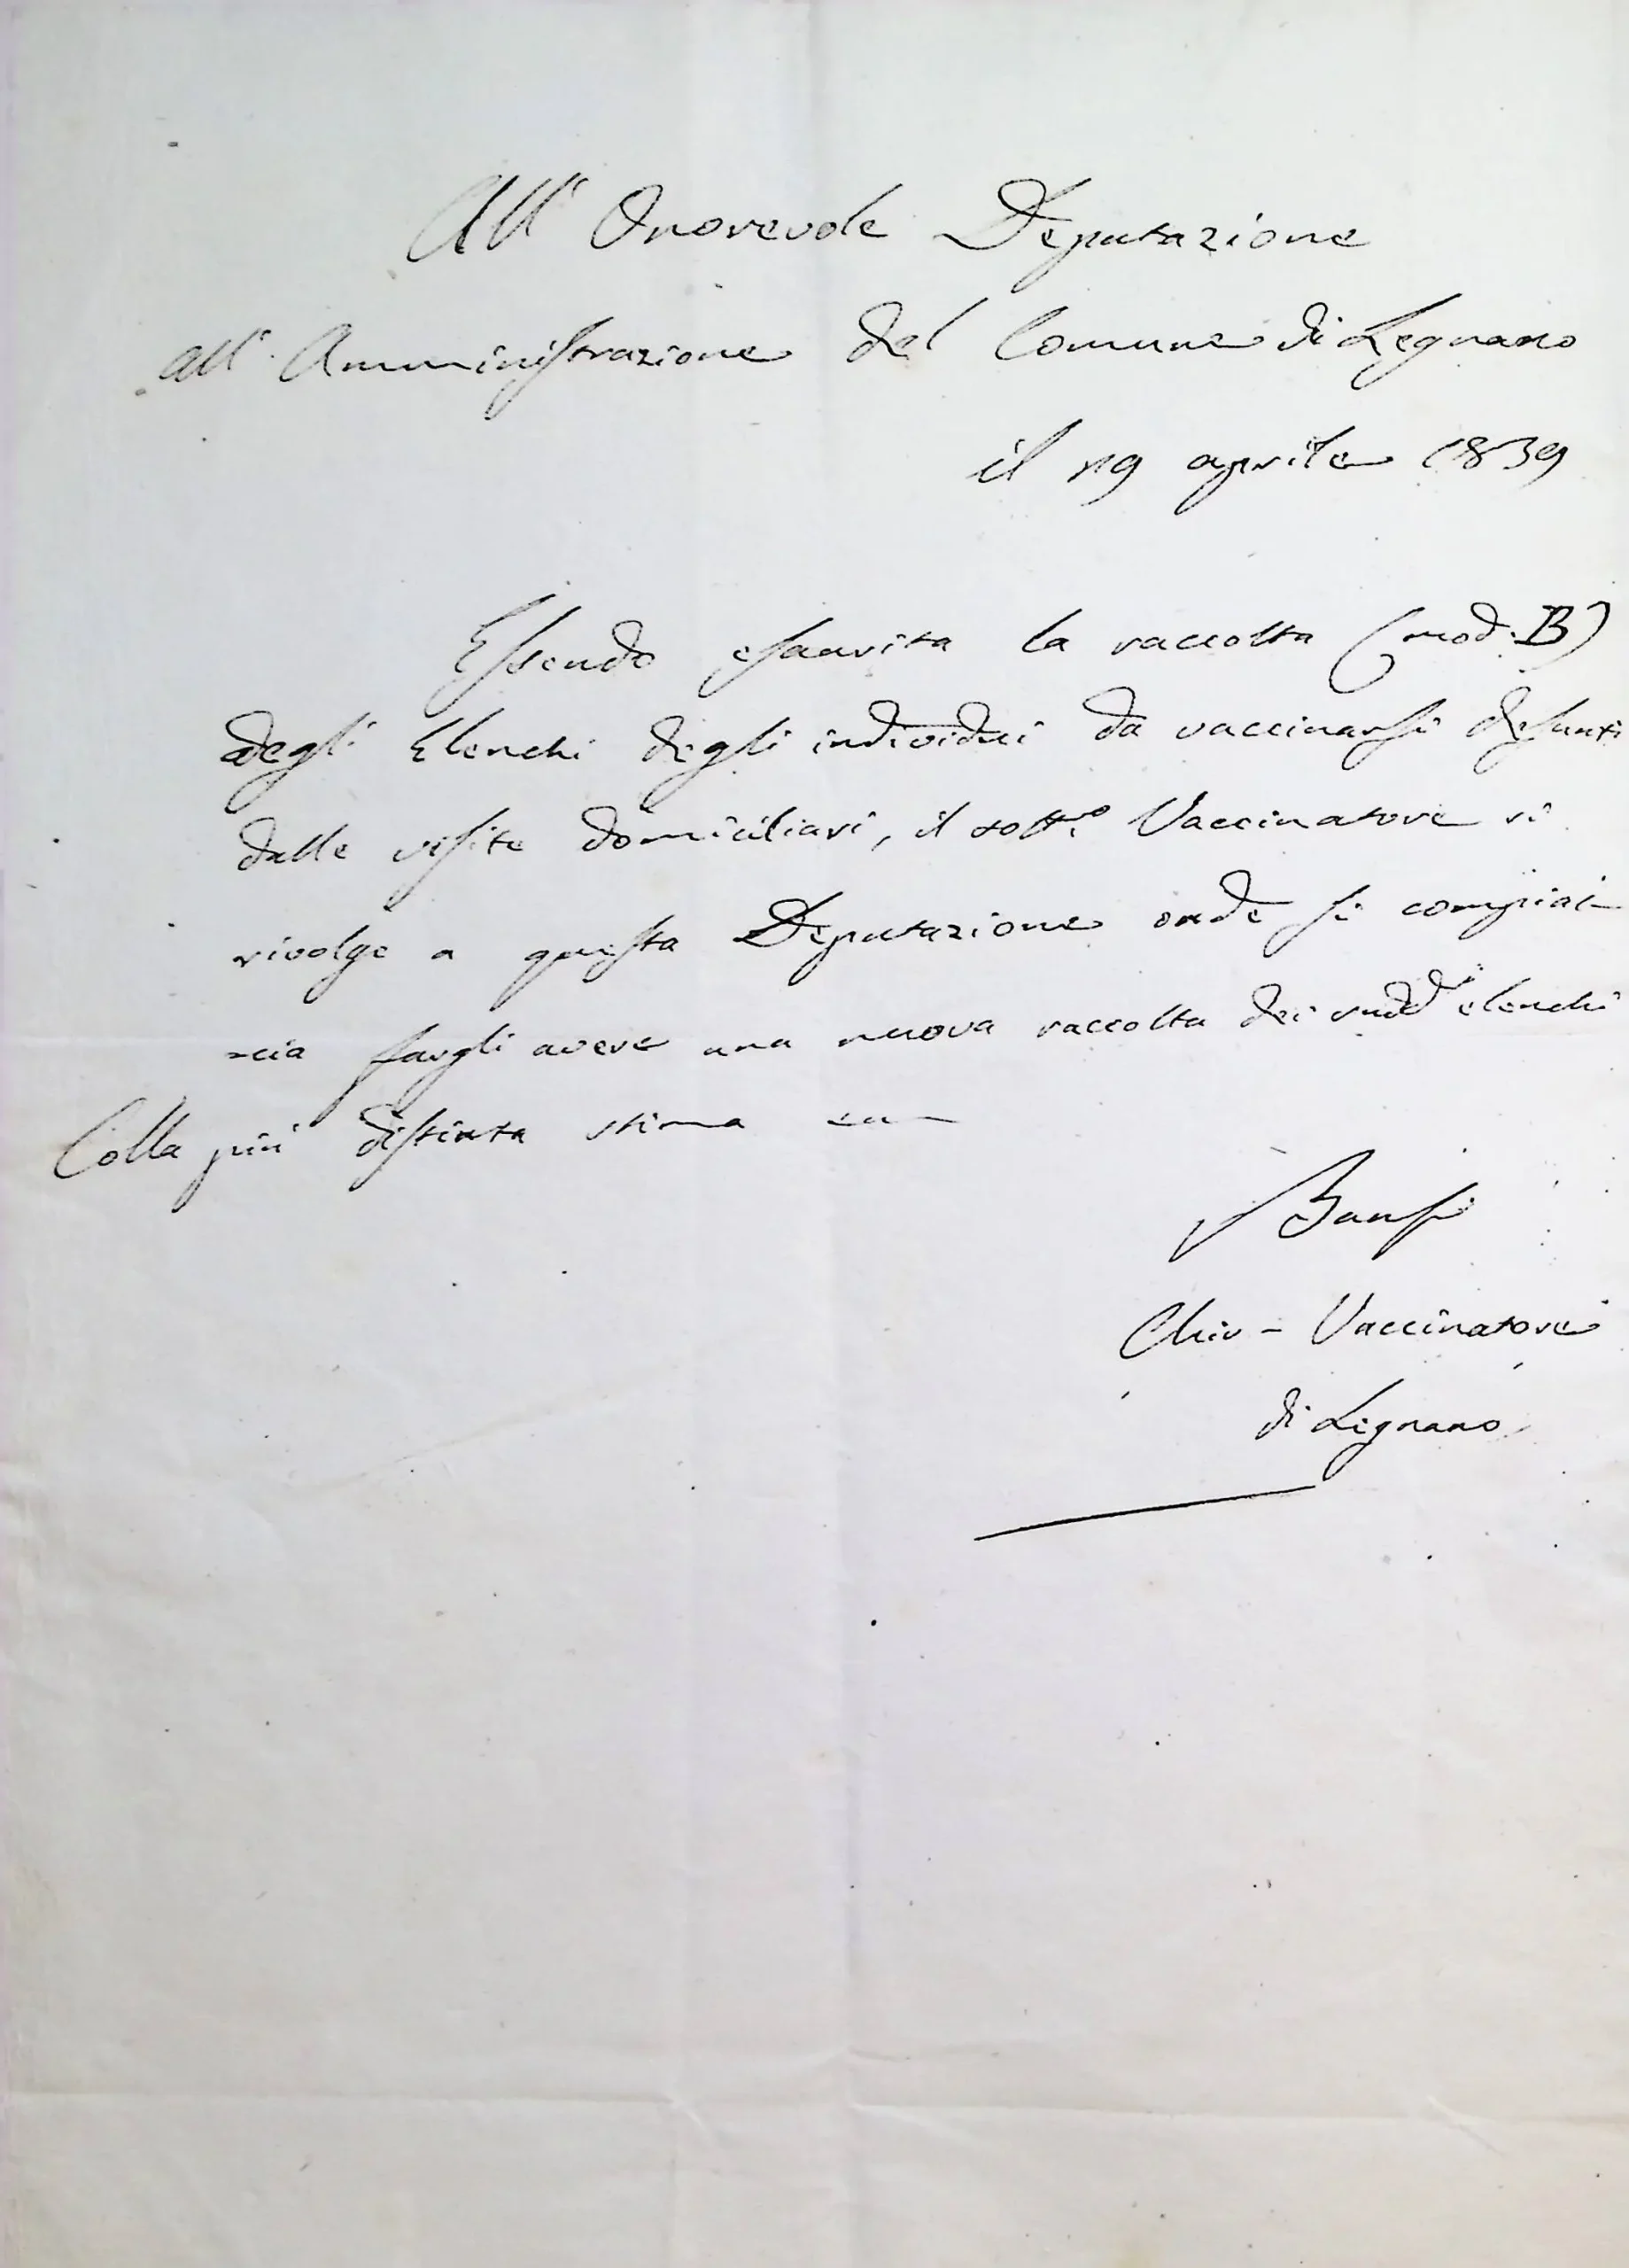 All' Onorevole Deputazione
all' Amministrazione del Comune di Legnano
il 19 aprile 1839
Essendo esaurita la raccolta (mod. B)
degli Elenchi degli individui da vaccinarsi desunti
dalle visite domiciliari, il sott.º Vaccinatore si
rivolge a questa Deputazione onde si compiac-
=cia fargli avere una nuova raccolta dei sudd.i elenchi
Colla più distinta stima
Banfi
Chir - Vaccinatore
di Legnano